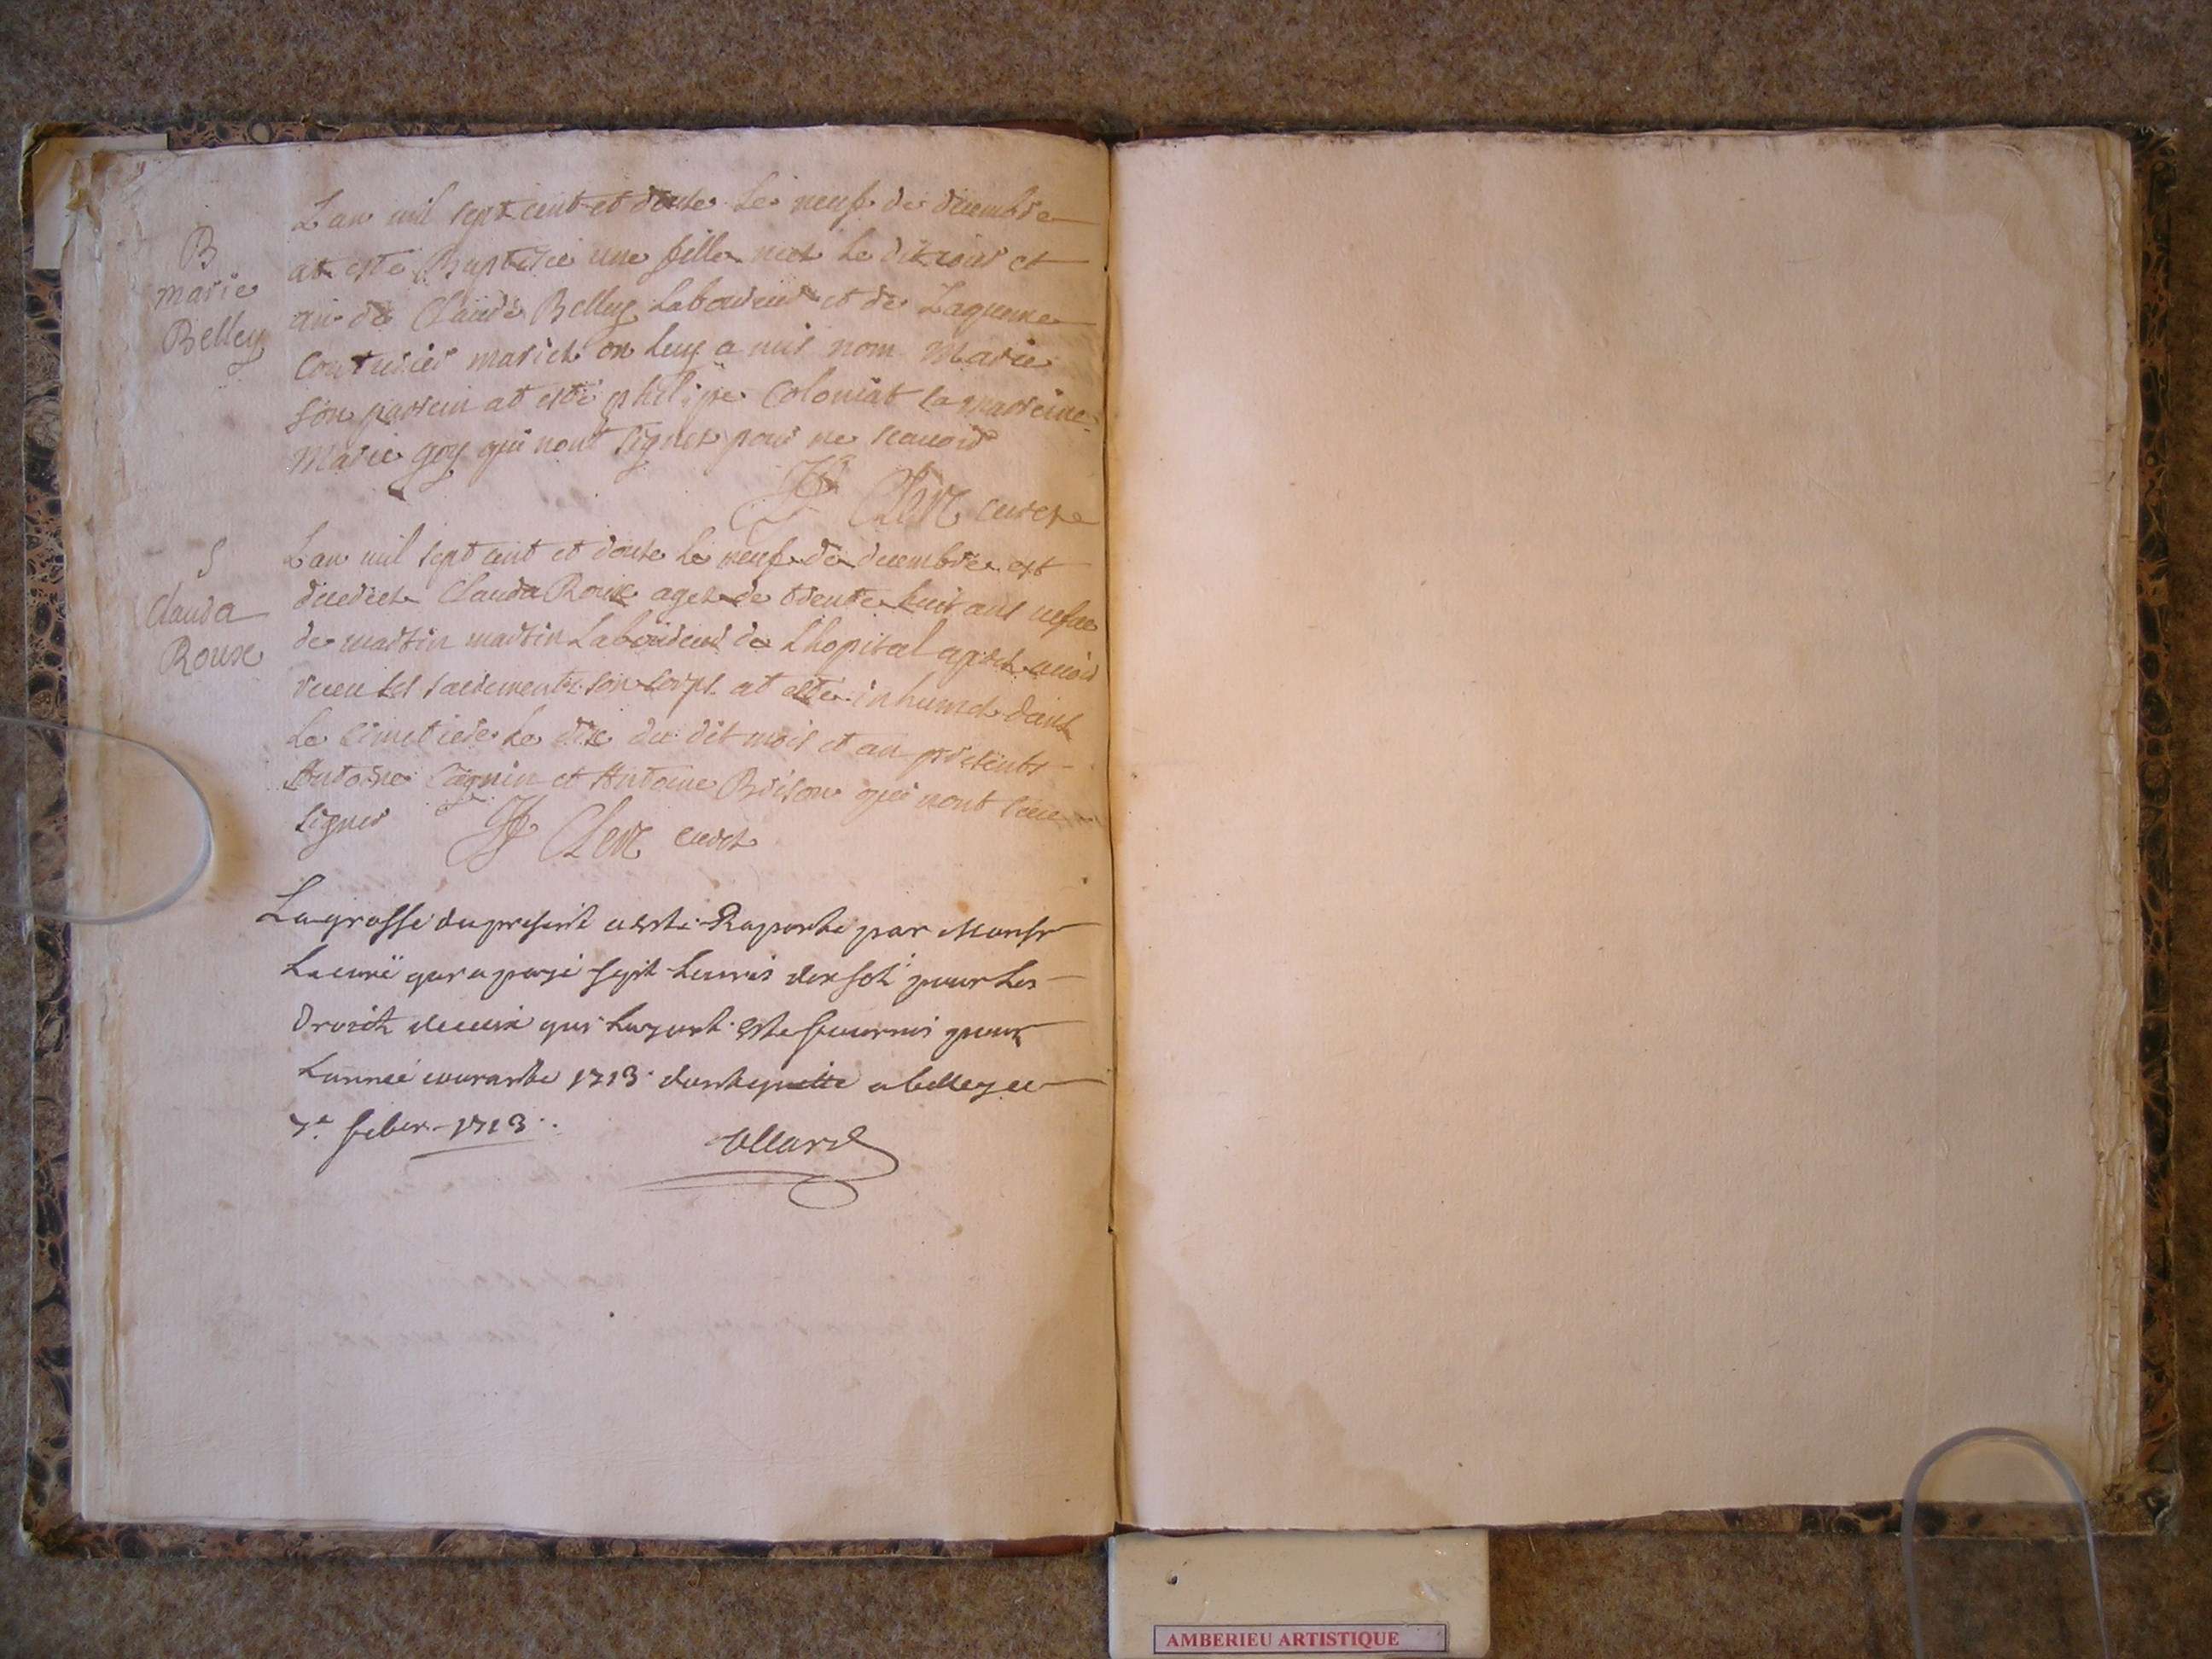 B
Marie
Belley
Lan mil sept cent et douse le neuf de decembre
at este Baptisée une fille neet le dit iour et
an de Claude Belley Laboureur et de Iaqueme
Couturier mariet on luy a mis nom Marie
son parrein at esté philipe Coloniat la marreine
Marie goy qui nont signet pour ne scauoir
Clerc curet
S
Clauda
Roux
Lan mil sept cent et douse le neuf de decembre est
decedeet Clauda Roux aget de trente huit ans
de martin martin Laboureur de Lhopital apret auoir
receu set sacrements son corps at esté inhumet dans
Le cimetiere le dix du dit mois et an presents
Antoine et Antoine Brison qui nont sceu
signer Clerc curet
La grosse du present a esté Raporté par Monsr
Le curé qui a payé sept Liures dix sol pour les
droits diceux qui luy ont esté fournis pour
Lannée courante 1713 dont quitte a belley ce
7e feber 1713
Allard
AMBERIEU ARTISTIQUE